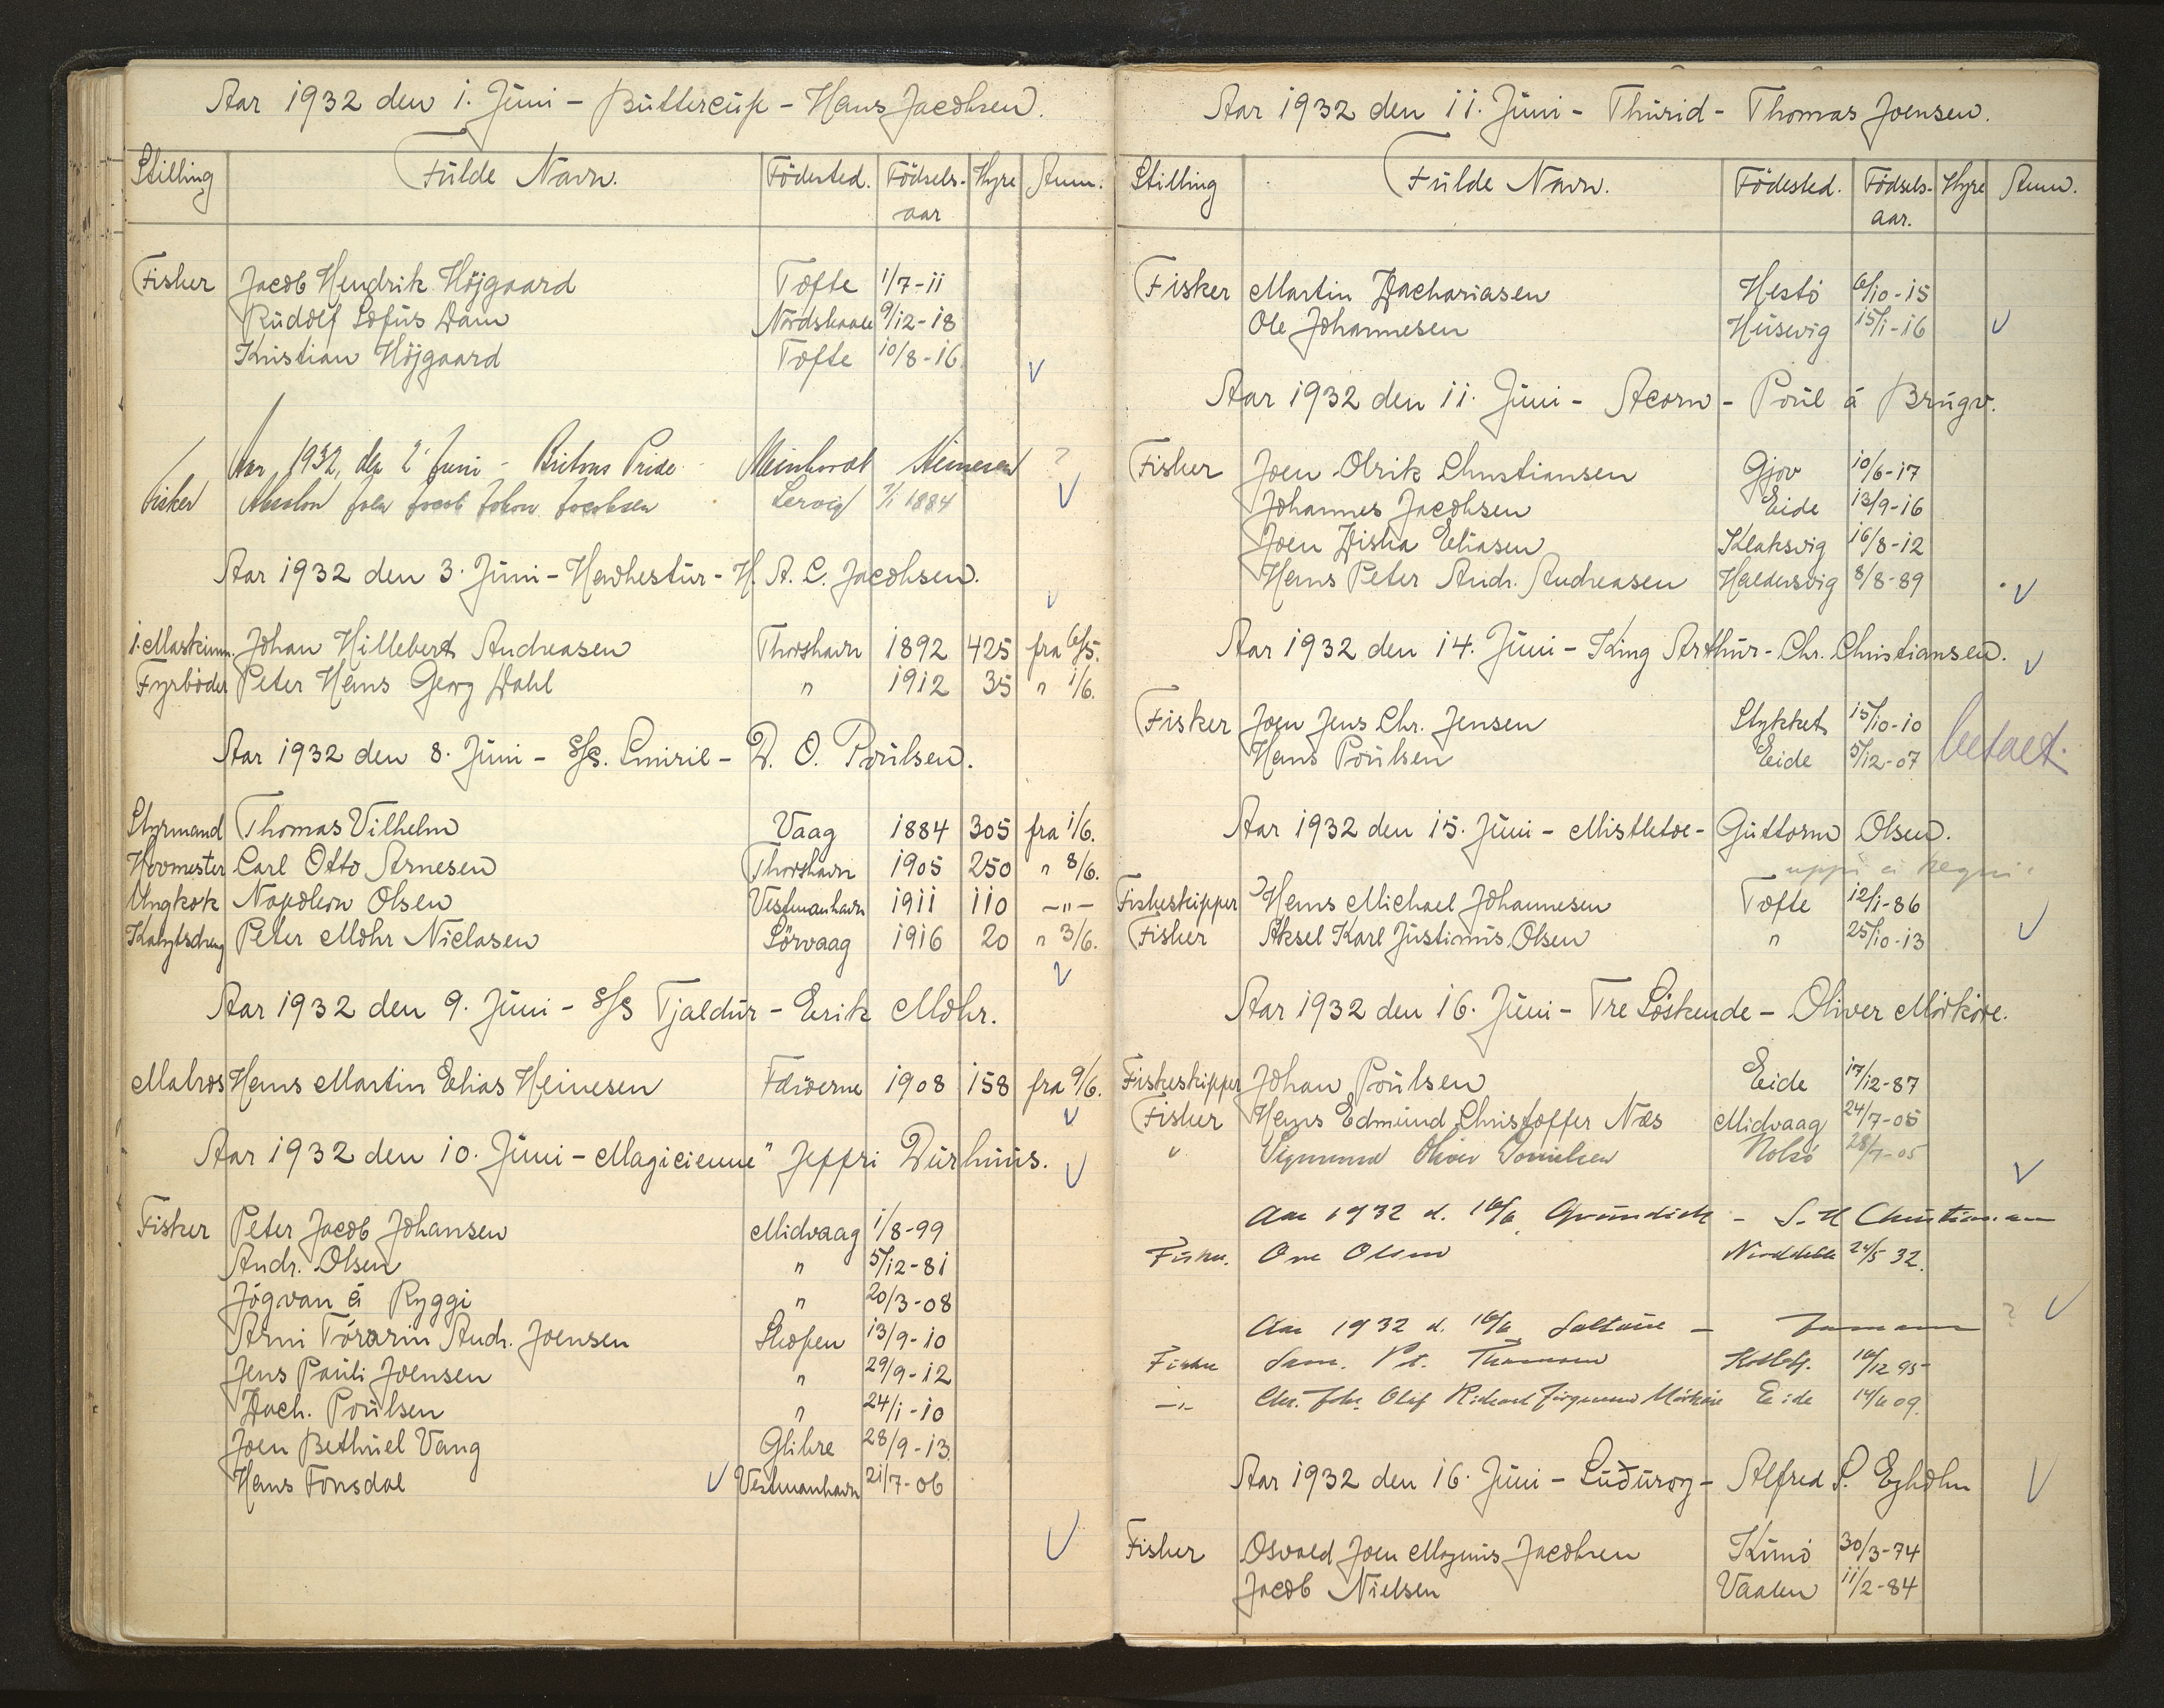 Aar 1932 den 1. Juni - Buttercup - Hans Jacobsen.
Stilling Fulde Navn. Födested. Födsels-aar Hyre Anm.
Fisker Jacob Hendrik Höjgaard Tofte 1/7-11
Rudolf Sofus Dam Nordskaale 9/12-18
Kristian Höjgaard Tofte 10/8-16
Aar 1932, den 2' Juni - Britons Pride - Meinhardt Heinesen ?
Fisker Absalon Joen Jacob Johan Jacobsen Lervig 7/1 1884
Aar 1932 den 3. Juni - Havhestur - H. A. C. Jacobsen.
1. Maskinm. Johan Hillebert Andreasen Thorshavn 1892 425 fra 6/5.
Fyrböder Peter Hans Georg Dahl " 1912 35 " 1/6.
Aar 1932 den 8. Juni - S/S. Smiril - D. O. Poulsen.
Styrmand Thomas Vilhelm Vaag 1884 305 fra 1/6.
Hovmester Carl Otto Arnesen Thorshavn 1905 250 " 8/6.
Ungkok Napoleon Olsen Vestmanhavn 1911 110 -"-
Kahytsdreng Peter Mohr Niclasen Sörvaag 1916 20 " 3/6.
Aar 1932 den 9. Juni - S/S Tjaldur - Erik Mohr.
Matros Hans Martin Elias Heinesen Færöerne 1908 158 fra 9/6.
Aar 1932 den 10. Juni - Magicienne" Jeffri Durhuus.
Fisker Peter Jacob Johansen Midvaag 1/8-99
Andr. Olsen " 5/12-81
Jógvan á Ryggi " 20/3-08
Arni Tórarin Andr. Joensen Skopen 13/9-10
Jens Pauli Joensen " 29/9-12
Zach. Poulsen " 24/1-10
Joen Bethuel Vang Glibre 28/9-13
Hans Fonsdal Vestmanhavn 21/7-06
Aar 1932 den 11. Juni - Thurid - Thomas Joensen.
Stilling Fulde Navn. Födested. Födsels-aar. Hyre Anm.
Fisker Martin Zachariasen Hestö 6/10-15
Ole Johannesen Husevig 15/1-16
Aar 1932 den 11. Juni - Acorn - Poul á Brúgv.
Fisker Joen Olrik Christiansen Gjov 10/6-17
Johannes Jacobsen Eide 13/9-16
Joen Ziska Eliasen Klaksvig 16/8-12
Hans Peter Andr. Andreasen Haldersvig 8/8-89
Aar 1932 den 14. Juni - King Arthur - Chr. Christiansen.
Fisker Joen Jens Chr. Jensen Stykket 15/10-10
Hans Poulsen Eide 5/12-07 betalt.
Aar 1932 den 15. Juni - Mistletoe - Guttorm Olsen.
Fiskeskipper Hans Michael Johannesen Tofte 12/1-86
Fisker Aksel Karl Justinus Olsen " 25/10-13
Aar 1932 den 16. Juni - Tre Söskende - Oliver Mörköre.
Fiskeskipper Johan Poulsen Eide 17/12-87
Fisker Hans Edmund Christoffer Næs Midvaag 24/7-05
" Sigmund Oliver Danielsen Nolsö 28/7-05
Aar 1932 d. 16/6 Grundick - S. H Christiansen
Fisker. One Olsen 24/5 32.
Aar 1932 d. 16/6 Saltaire -
Fisker Sam. Pet. Thomsen Kollefj. 16/12 95
-"- Chr. Joh. Olaf Richard Jörgensen Mörköre Eide 14/6 09.
Aar 1932 den 16. Juni - Suðuroy - Alfred S. Ejholm
Fisker Osvald Joen Magnus Jacobsen Kunö 30/3-74
Jacob Nielsen Vaalen 11/2-84